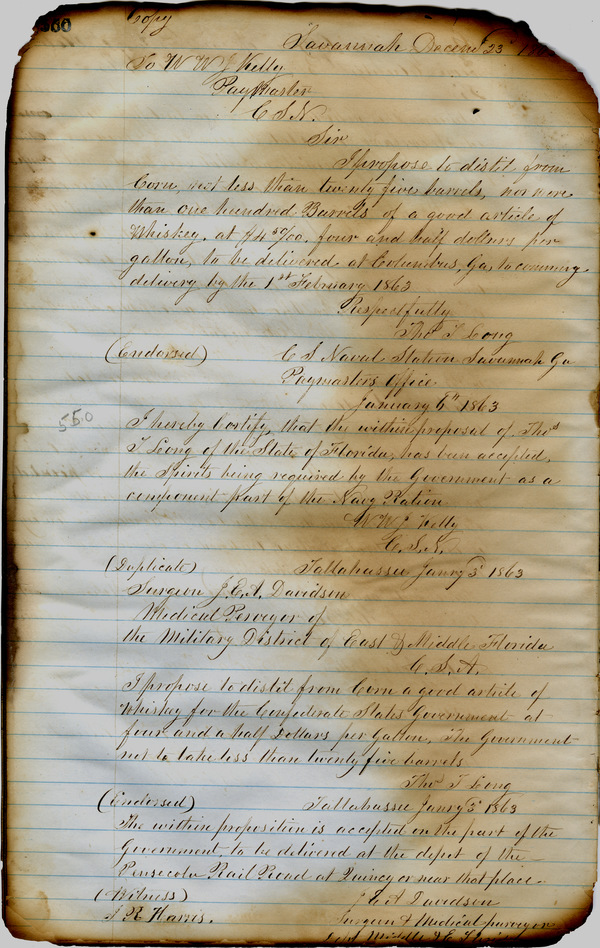 Copy
Savannah Decemr 23d
To W W J Kelly
Paymaster
C S N.
Sir
I propose to distil from
Corn, not less than twenty five barrels, nor more
than one hundred Barrels of a good article of
Whiskey, at $4 50/100, four and half dollars per
gallon, to be delivered at Columbus, Ga
delivery by the 1st February 1863
Respectfully
Thos T Long
(Endorsed) C S Naval Station Savannah Ga
Paymasters Office
January 6th 1863
550
I hereby Certify, that the within proposal of Thos
T Long of the State of Florida, has been accepted,
the Spirits being required by the Government as a
component part of the Navy Ration
W W J Kelly
C.S.N.
(Duplicate) Tallahassee Janry 3d 1863
Surgeon J.E.A. Davidson
Medical Purveyor of
the Military District of East & Middle Florida
C.S.A.
I propose to distil from Corn a good article of
Whiskey for the Confederate States Government at
four and a half Dollars per Gallon. The Government
not to take less than twenty five barrels
Thos T Long
(Endorsed) Tallahassee Janry 3d 1863
The within proposition is accepted on the part of the
Government, to be delivered at the depot of the
Pensacola Rail Road at Quincy or near that place.
(Witness) J E A Davidson
R Harris. Surgeon & Medical purveyor
Middle & E